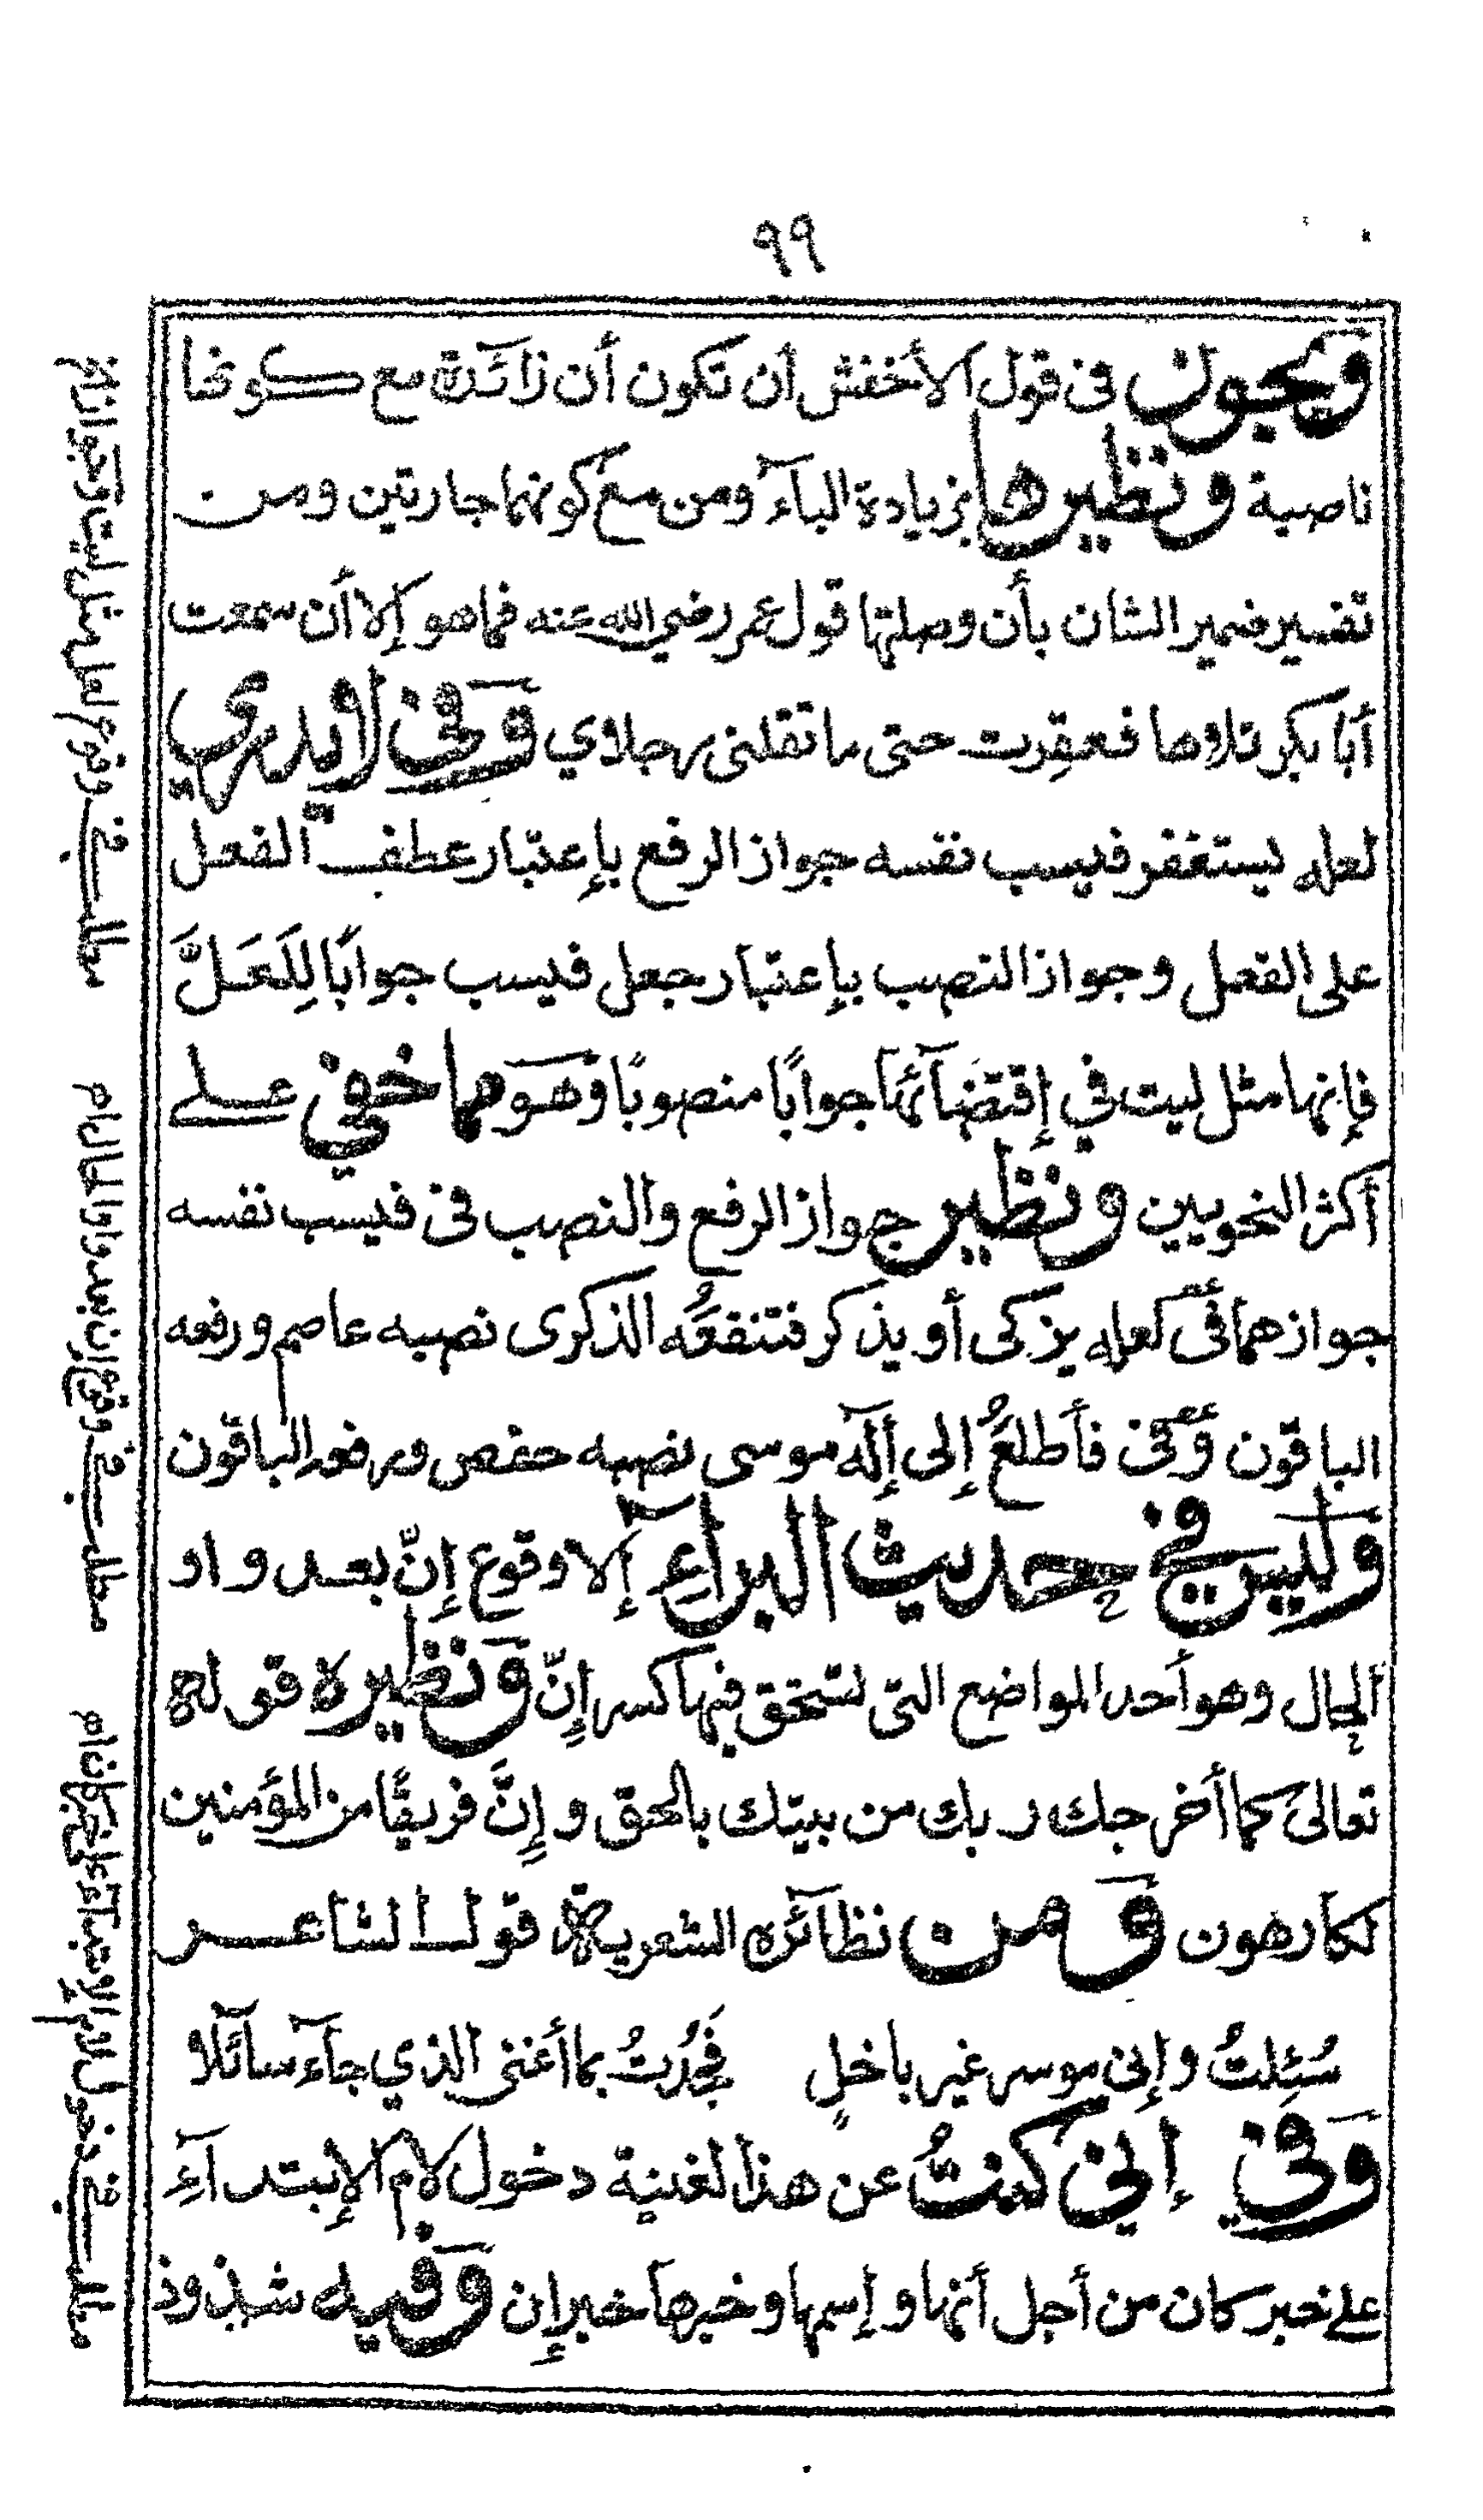 ٩٩
ويجوز فى قول الأخفش أن تكون أن زآئدة مع كونها
ناصبة ونظيرها بزيادة البآء ومن مع كونهما جارتين ومن
تفسير ضمير الشان بأن وصلتها قول عمر رضي الله عنه فما هو إلا أن سمعت
أبا بكر تلاها فعقرت حتى ما تقلنى رجلاي وفي لا يدري
لعله يستغفر فيسب نفسه جواز الرفع بإعتبار عطف الفعل
على الفعل وجواز النصب بإعتبار جعل فيسب جوابًا لِلَعَلَّ
فإنها مثل ليت في إقتضآئها جوابًا منصوبًا وهو مما خفي على
أكثر النحويين ونظير جواز الرفع والنصب فى فيسب نفسه
جوازهما فى لعله يزكى أو يذكر فتنفعُه الذكرى نصبه عاصم ورفعه
الباقون وفى فأطلعُ إلى إلٓه موسى نصبه حفص ورفعه الباقون
وليس في حديث البرآءِ إلا وقوع إنّ بعد واو
الحال وهو أحد المواضع التى تستحق فيها كسر إنّ ونظيره قوله
تعالىٰ كما أخرجك ربك من بيتك بالحق وإنَّ فريقًا من المؤمنين
لكارهون ومن نظآئره الشعرية قول الشاعر
سُئِلتُ وإنى موسر غير باخلٍ فَجُدْتُ بما أغنى الذي جآء سآئلا
وفي إني كنتُ عن هذا لغنية دخول لام الإبتدآءِ
على خبر كان من أجل أنها وإسمها وخبرها خبر إن وفيه شذوذ
مطلب في وقوع لعل مثل ليت في جوابها
مطلب في وقوع إن بعد واو الحال
مطلب في دخول لام الإبتدآء على خبر كان